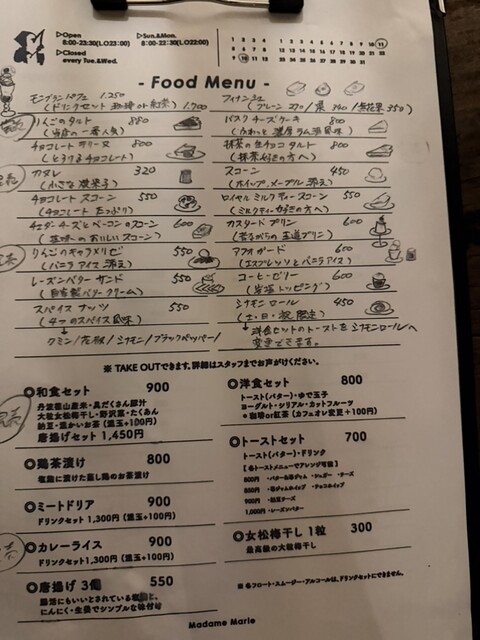 ▷Open
8:00-23:30(LO23:00)
▷Sun.&Mon.
8:00-22:30(LO22:00)
▷Closed
every Tue.&Wed.
- Food Menu -
モンブランパフェ 1,250
(ドリンクセット 珈琲or紅茶) 1,700
フィナンシェ
(プレーン 270 / 黒 340 / 無花果 350)
りんごのタルト 880
(当店の一番人気)
バスクチーズケーキ 800
チョコレートテリーヌ 800
(とろけるチョコレート)
抹茶の生チョコタルト 580
(抹茶好きの方へ)
カヌレ 320
(小さな焼菓子)
スコーン 450
(ホイップ、メープル 添え)
チョコレートスコーン 550
(チョコレートたっぷり)
ロイヤルミルクティースコーン 550
(ミルクティー好きの方へ)
チェダーチーズとベーコンのスコーン 600
カスタードプリン 600
(昔ながらの王道プリン)
りんごのキャラメリゼ 550
(バニラアイス 添え)
アフォガード 600
(エスプレッソとバニラアイス)
レーズンバターサンド 550
(自家製バタークリーム)
コーヒーゼリー 600
スパイスナッツ 550
(4つのスパイス風味)
シナモンロール 450
(土・日・祝 限定)
クミン/花椒/シナモン/ブラックペッパー/
洋食セットのトーストをシナモンロールへ
変更できます。
※ TAKE OUTできます。詳細はスタッフまでお声がけください。
◎和食セット 900
丹波篠山産米・具だくさん豚汁
大粒女松梅干し・野沢菜・たくあん
納豆・温かいお茶 (黒玉+100円)
唐揚げセット 1,450円
◎鶏茶漬け 800
塩麹に漬けた蒸し鶏のお茶漬け
◎ミートドリア 900
ドリンクセット 1,300円 (黒玉+100円)
◎カレーライス 900
ドリンクセット1,300円 (黒玉+100円)
◎唐揚げ 3個 550
腸活にもいいとされている
にんにく・生姜でシンプルな味付け
◎洋食セット 800
トースト(バター)・ゆで玉子
ヨーグルト・シリアル・カットフルーツ
*珈琲or紅茶 (カフェオレ変更+100円)
◎トーストセット 700
トースト(バター)・ドリンク
【各トーストメニューでアレンジ可能】
1,000円・レーズンバター
◎女松梅干し 1粒 300
最高級の大粒梅干し
※各フロート・スムージー・アルコールは、ドリンクセットにできません。
Madame Marie